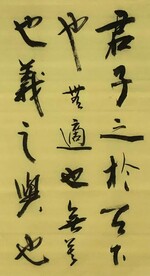 君子之於天下
也無適也無莫
也義之與比